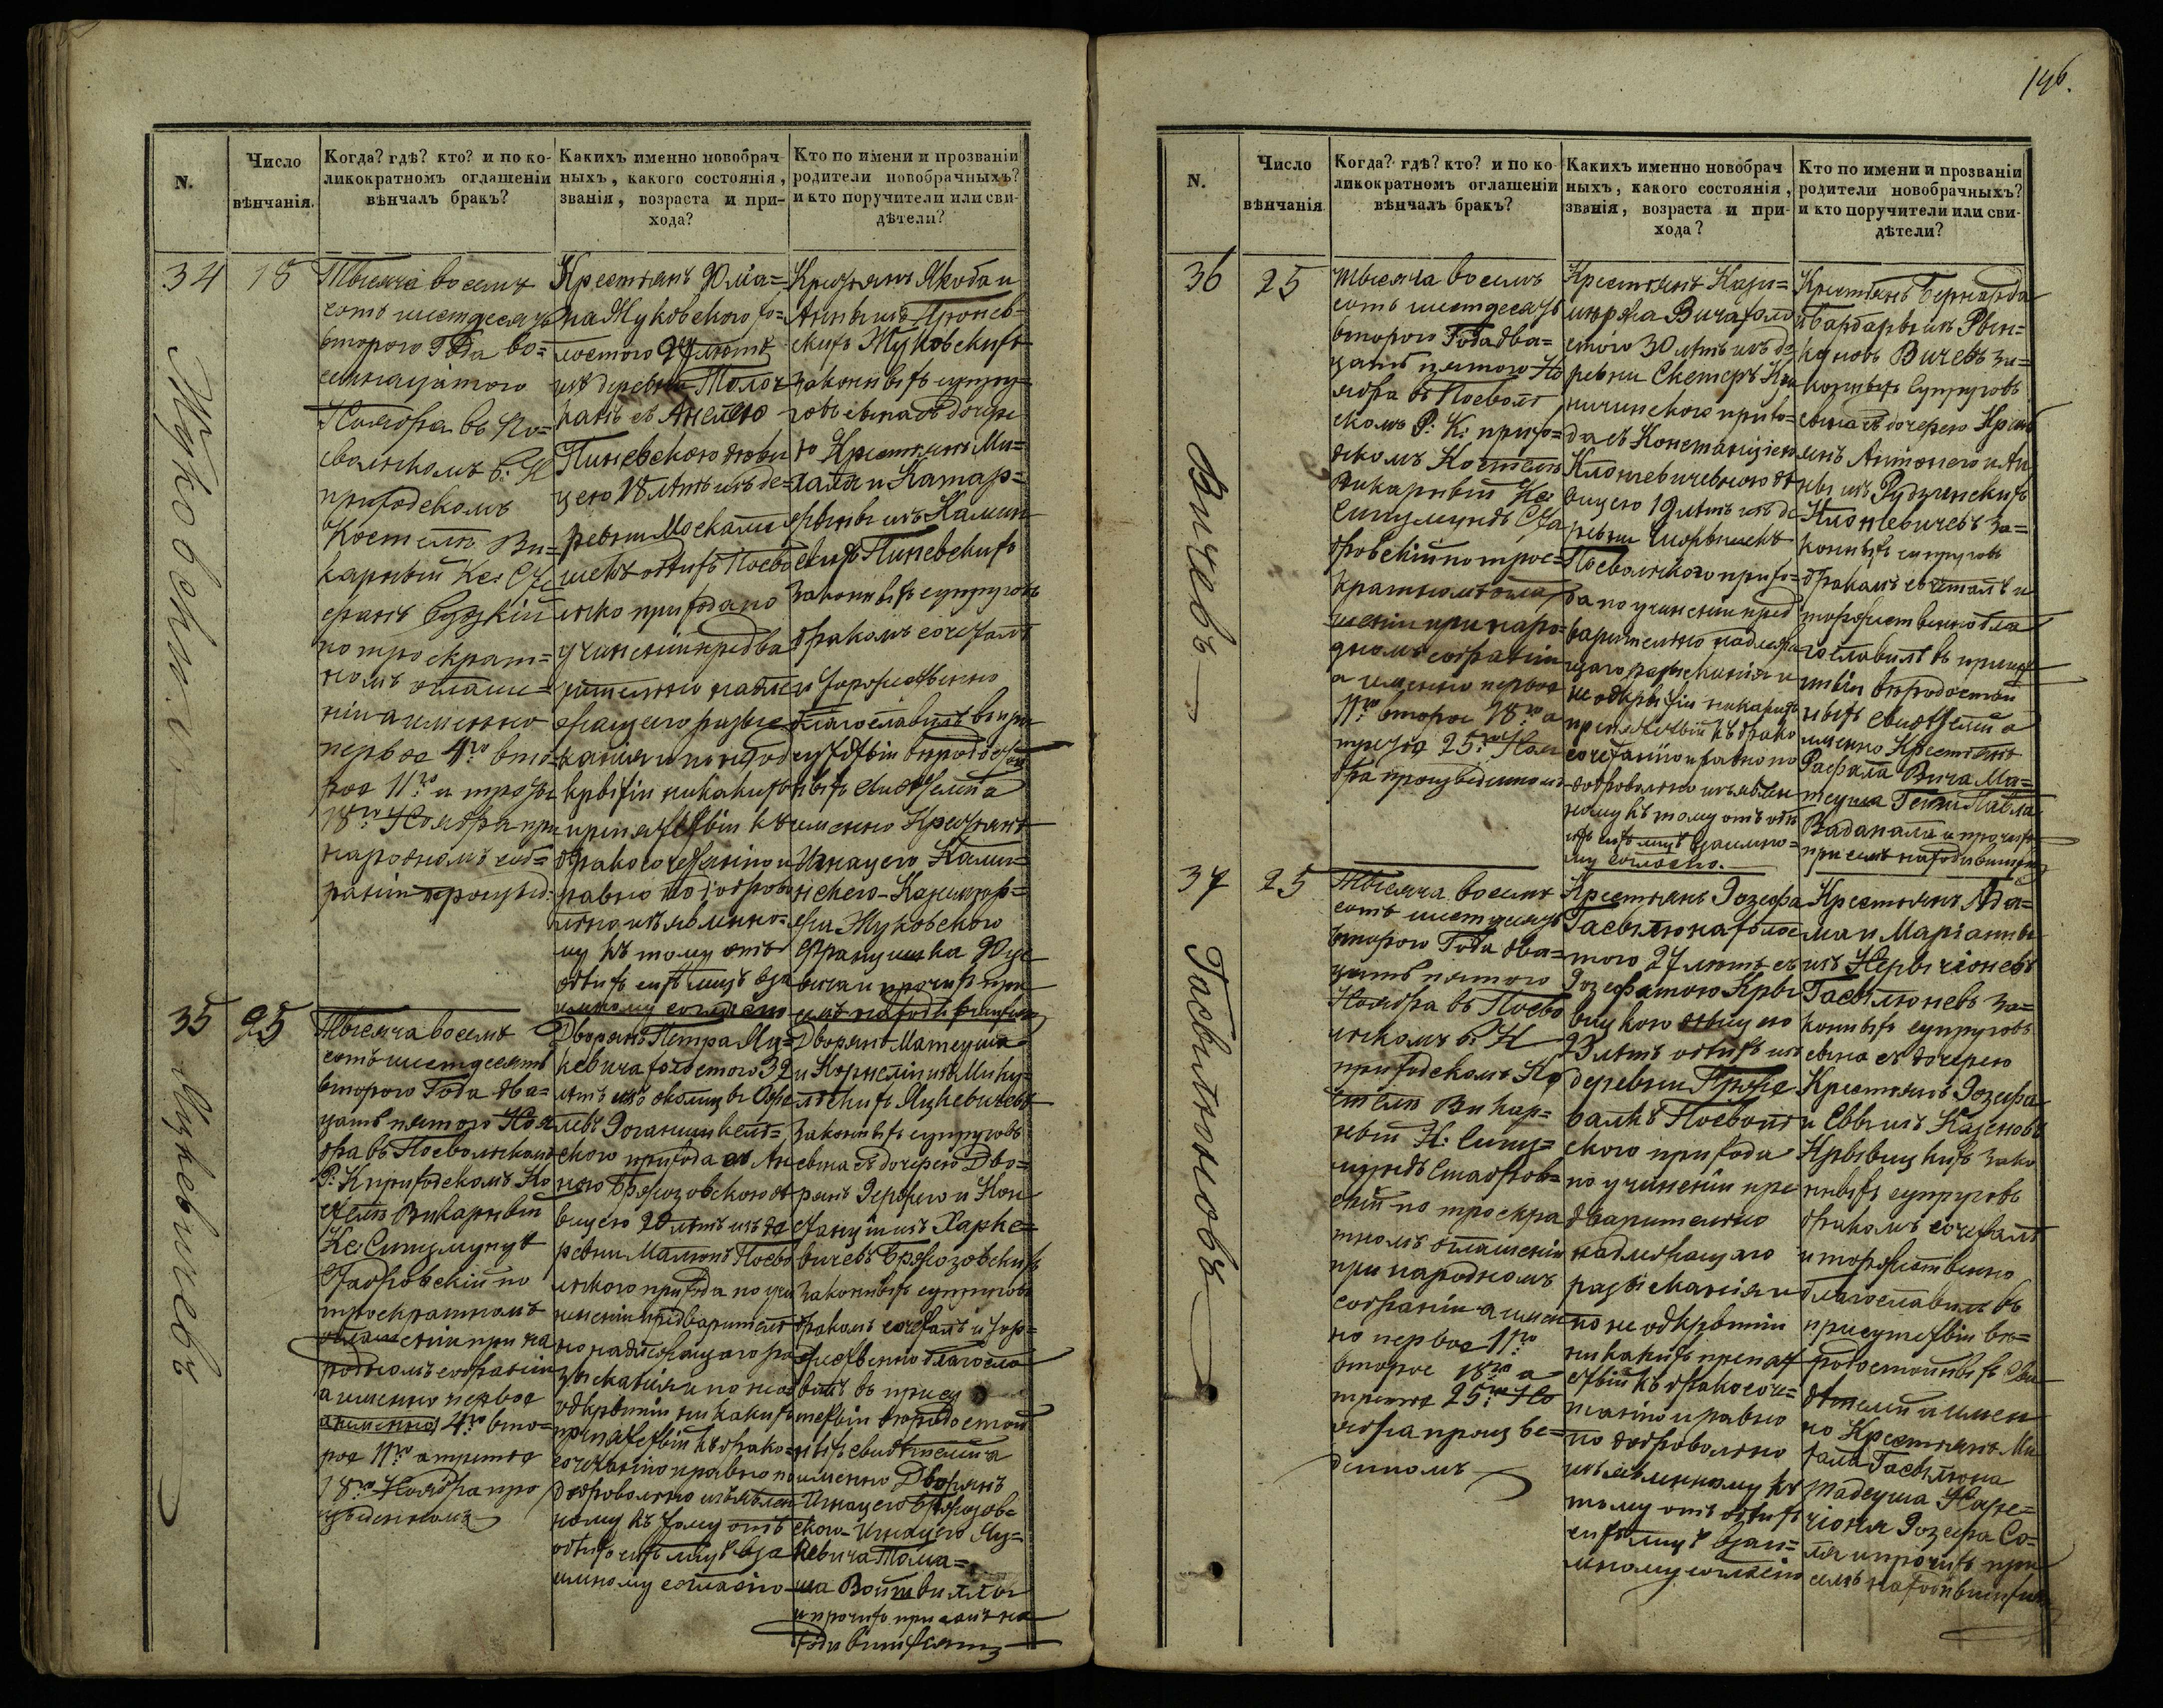 196.
N.
Число
вѣнчанія.
Когда? гдѣ? кто? и по ко-
ликократномъ оглашеніи
вѣнчалъ бракъ?
Какихъ именно новобрач-
ныхъ, какого состоянія,
званія, возраста и при-
хода?
Кто по имени и прозванію
родители новобрачныхъ?
и кто поручители или сви-
дѣтели?
34
18
Жуковскій
Тысяча восемъ
сотъ шестдесятъ
втораго Года во=
семнацатого
Ноября въ По=
свольскомъ Р. К
приходскомъ
Костелѣ Ви=
карный Кс:
по троекрат=
номъ оглаше=
ніи а именно
первое 4го вто=
рое 11го и третье
18го Ноября при
народномъ соб=
раніи произвед.
Крестьянъ
на Жуковского хо=
лостого лѣтъ
изъ деревни
съ Анелею
Пиневскою дѣви
цею 18 лѣтъ изъ де=
ревни
обоихъ Посво
льско прихода по
учиненіи предва
рительно надле
жащего разыс
канія и по неод
крытіи никакихъ
припятствіи къ
бракосочетанію и
равно по доброво
льно изъявленно=
му къ тому отъ
обоихъ сихъ лицъ вза
имному согласію
Крестьянъ Якоба и
Анны изъ
скихъ Жуковскихъ
законныхъ супру=
говъ сына съ дочерь
ю Крестьянъ Ми=
хала и Катар=
жины изъ Камин
скихъ Пиневскихъ
Законныхъ супруговъ
бракомъ сочеталъ
и торжественно
благославилъ въ при
сутствіи вѣродостой
ныхъ свидѣтелей а
именно Крестьянъ
Игнацего Камин=
ского - Казимир=
жа Жуковского
Францишка
вича и прочихъ при
семъ находившихся
35
25
Яцкевичевъ
Тысяча восемъ
сотъ шестдесятъ
втораго Года два=
цать пятого Ноя
бря въ Посвольскомъ
Р: К приходскомъ Ко
стелѣ Викарный
Кс: Сигизмундъ
Стабровскій по
троекратномъ
оглашеніи при на
родномъ собраніи
а именно первое
а именно 4го вто=
рое 11го а третее
18го Ноября про
изведенномъ
Дворянъ Петра Яц=
кевича холостого 32
лѣтъ изъ околицы
Іоганишкель=
ского прихода съ Ан
ною Бржозовскою дѣ
вицею 20 лѣтъ изъ де
ревни Посво
льского прихода по учи
неніи предварительн
но надлежащаго ра
зысканія и по не
одкрытіи никакихъ
препятствіи къ брако=
сочетанію и равно по
добровольно изъявлен
ному къ тому отъ
обоихъ сихъ лицъ вза
имному согласію
Дворянъ Матеуша
и Корнеліи изъ Мику=
льскихъ Яцкевичевъ
законныхъ супруговъ
сына съ дочерею Дво=
рянъ Іержего и Кон
станціи изъ Харке=
вичевъ Бржозовскихъ
Законныхъ супруговъ
бракомъ сочеталъ и тор=
жественно благосла
вилъ въ присут
ствіи вѣродостой
ныхъ свидѣтелей а
именно Дворянъ
Игнацего Бржозов=
ского - Игнацего Яц=
кевича Тома=
ша Войтвиллы
и прочихъ при семъ на
ходившихся
N.
Число
вѣнчанія
Когда? гдѣ? кто? и по ко
ликократномъ оглашеніи
вѣнчалъ бракъ?
Какихъ именно новобрач
ныхъ, какого состоянія,
званія, возраста и при-
хода?
Кто по имени и прозванію
родители новобрачныхъ?
и кто поручители или сви-
дѣтели?
36
25
Вичевъ
Тысяча восемъ
сотъ шестдесятъ
втораго Года два=
цать пятого Но
ября въ Посволь
скомъ Р: К: прихо=
дскомъ Костелѣ
Викарный Кс:
Сигизмундъ Ста
бровскій по трое=
кратномъ огла
шеніи при наро=
дномъ собраніи
а именно первое
11го второе 18го а
третее 25го Ноя
бря произведенномъ
Крестьянъ Кази=
миржа Вича холо
стого 30 лѣтъ изъ де
ревни
прихо=
да съ Констанціею
Клонкевичевною дѣ
вицею 19 лѣтъ изъ де
ревни
Посвольского прихо=
да по учиненіи пред
варительно надлежа
щаго разысканія и
не одкрытіи никакихъ
препятствіи къ брако
сочетанію и равно по
добровольно изъявлен
ному къ тому отъ обо
ихъ сихъ лицъ взаимно=
му согласію.
Крестьянъ Бернарда
и Барбары изъ
Вичевъ за=
конныхъ супруговъ
сына съ дочерею Кресть
янъ Антонего и Ан
ны изъ Рудзинскихъ
Клонкевичевъ за=
конныхъ супруговъ
бракомъ сочеталъ и
торжественно бла
гославилъ въ присут
ствіи вѣродостой
ныхъ свидѣтелей а
именно Крестьянъ
Рафала Вича Ма=
теуша Павла
и прочихъ
при семъ находившихся
37
25
Гасвитоновъ
Тысяча восемъ
сотъ шестдесятъ
втораго Года два=
цать пятого
Ноября въ Посво
льскомъ Р. К
приходскомъ Ко
стелѣ Викар=
ный К: Сигиз=
мундъ Стабров=
скій по троекра
тномъ оглашеніи
при народномъ
собраніи а имен
но первое 11го
второе 18го а
третее 25го Но
ября произве=
денномъ
Крестьянъ Іозефа
холос
того 27 лѣтъ съ
Іозефатою Кры
вицкою дѣвицею
23 лѣтъ обоихъ изъ
деревни
Посволь
ского прихода
по учиненіи пре
дварительно
надлежащаго
разысканія и
по не одкрытіи
никакихъ препят
ствіи къ бракосоче=
танію и равно
по добровольно
изъявленному къ
тому отъ обоихъ
сихъ лицъ взаи=
мному согласію
Крестьянъ Ада=
ма и Маріанны
изъ
за=
конныхъ супруговъ
сына съ дочерею
Крестьянъ Іозефа
и Евы изъ
Крывицкихъ зако
нныхъ супруговъ
бракомъ сочеталъ
и торжественно
благославилъ въ
присутствіи вѣ=
родостойныхъ сви
дѣтелей а имен
но Крестьянъ Ми
хала
Тадеуша
Іозефа Со=
ля и прочихъ при
семъ находившихся